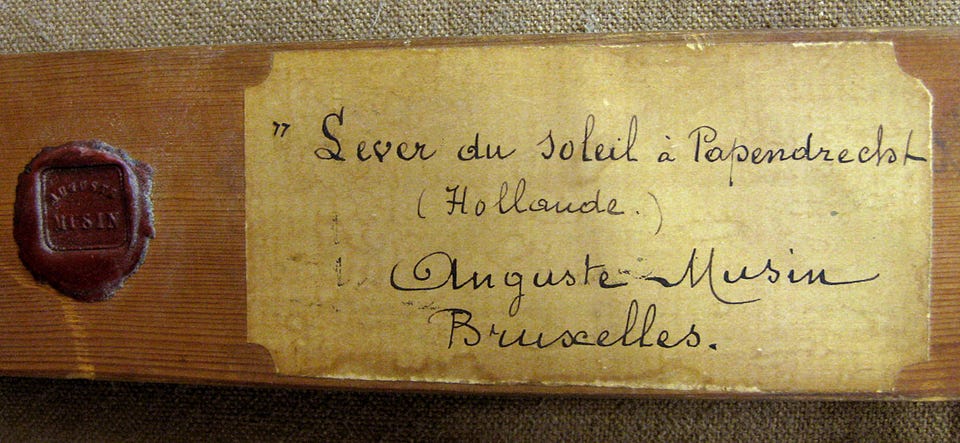 AUGUSTE
MUSIN
" Lever du soleil à Papendrecht
(Hollande.)
Auguste Musin
Bruxelles.